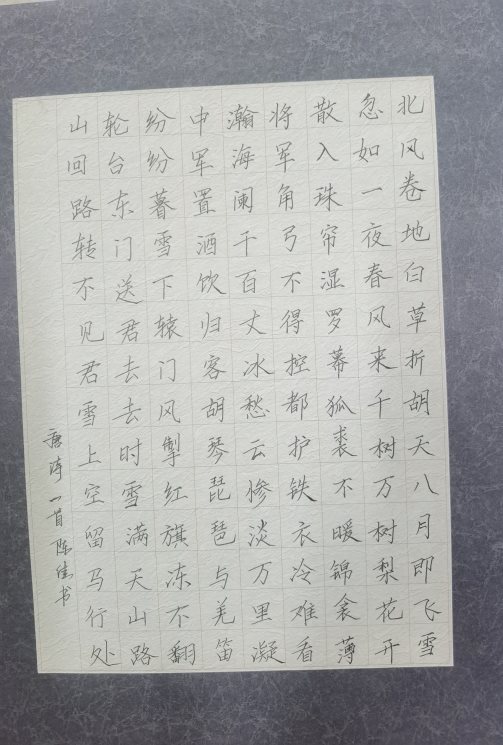 北风卷地白草折胡天八月即飞雪
忽如一夜春风来千树万树梨花开
散入珠帘湿罗幕狐裘不暖锦衾薄
将军角弓不得控都护铁衣冷难看
瀚海阑干百丈冰愁云惨淡万里凝
中军置酒饮归客胡琴琵琶与羌笛
纷纷暮雪下辕门风掣红旗冻不翻
轮台东门送君去去时雪满天山路
山回路转不见君雪上空留马行处
唐诗一首陈书